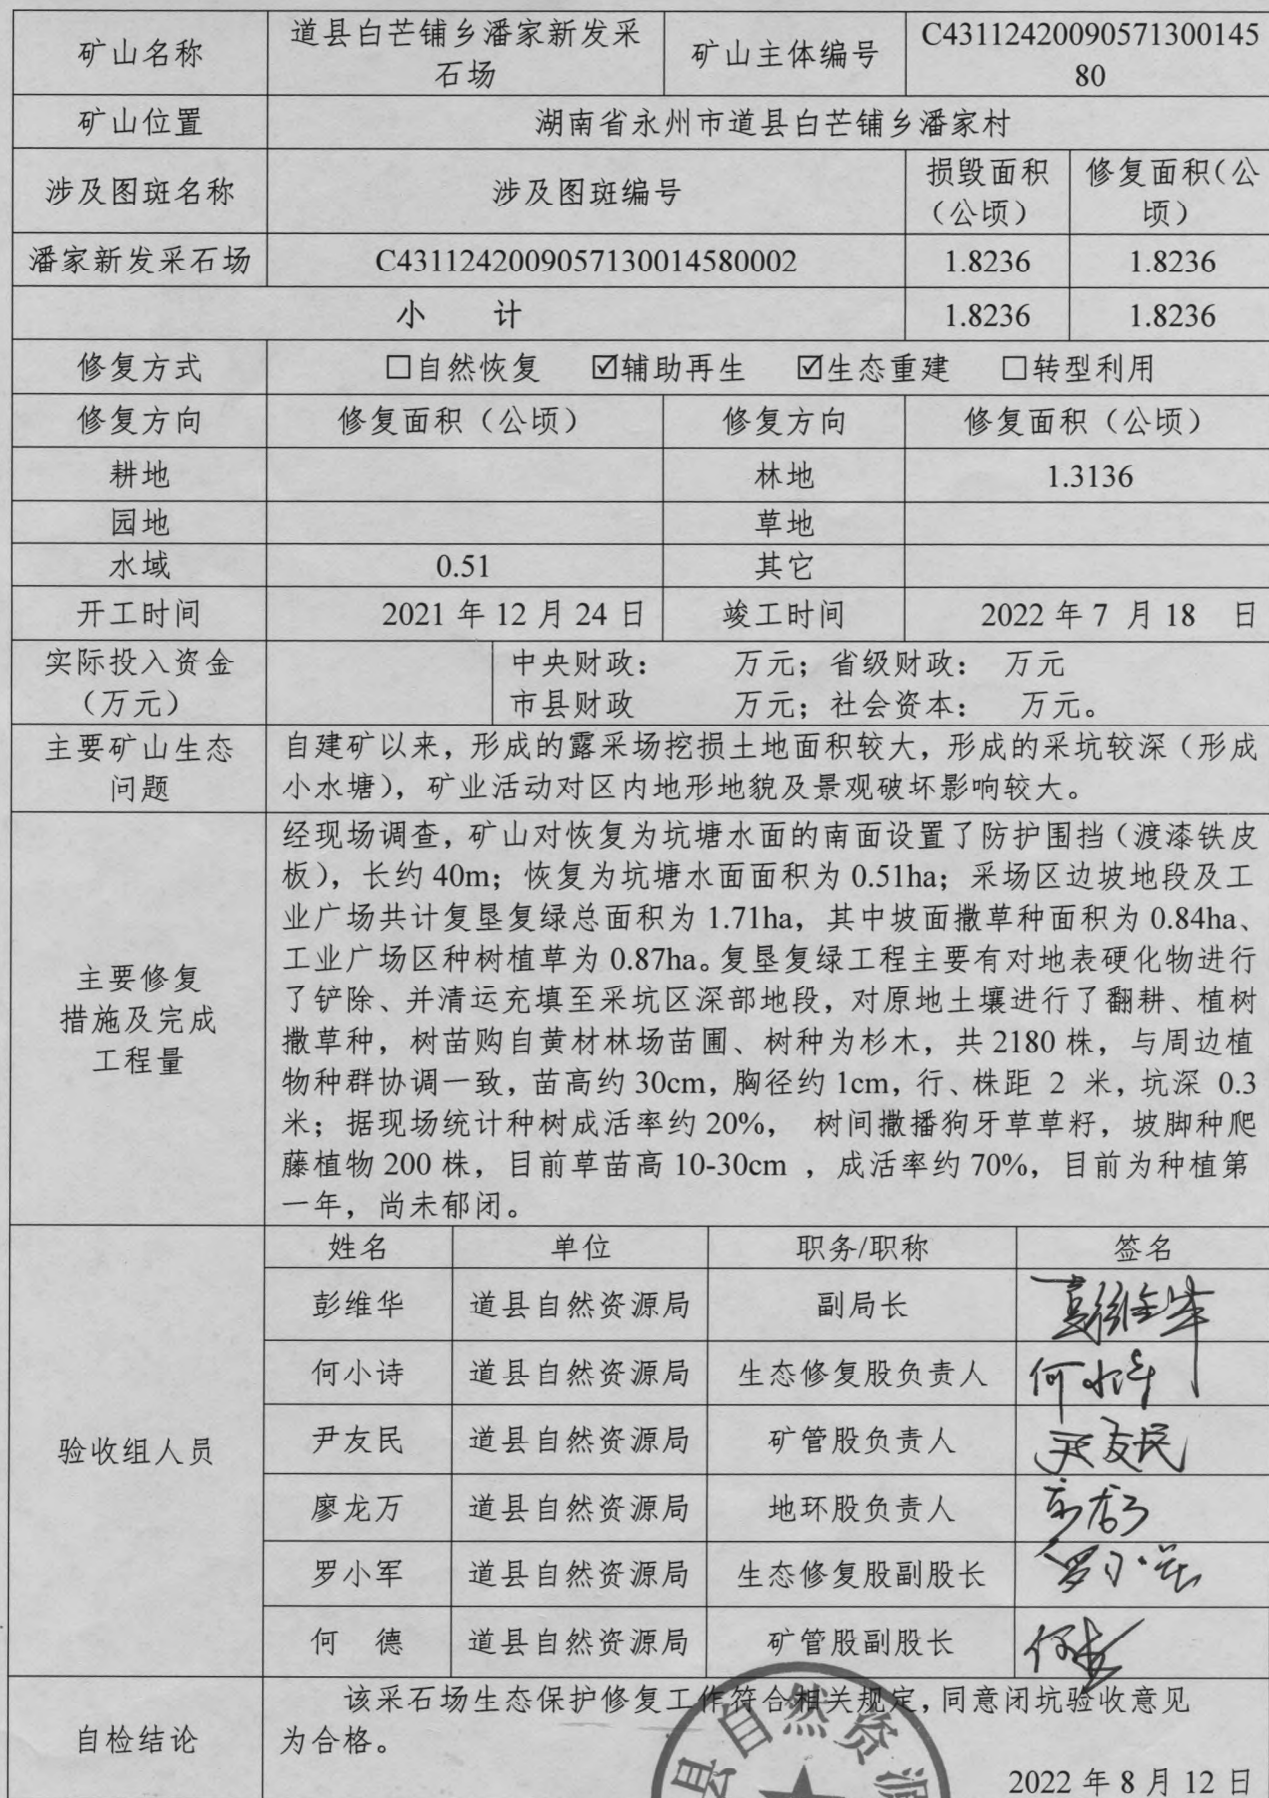 矿山名称 道县白芒铺乡潘家新发采石场 矿山主体编号 C4311242009057130014580
矿山位置 湖南省永州市道县白芒铺乡潘家村
涉及图斑名称 涉及图斑编号 损毁面积（公顷） 修复面积（公顷）
潘家新发采石场 C4311242009057130014580002 1.8236 1.8236
小 计 1.8236 1.8236
修复方式 ☐自然恢复 ☑辅助再生 ☑生态重建 ☐转型利用
修复方向 修复面积（公顷） 修复方向 修复面积（公顷）
耕地 林地 1.3136
园地 草地
水域 0.51 其它
开工时间 2021 年 12 月 24 日 竣工时间 2022 年 7 月 18 日
实际投入资金（万元） 中央财政： 万元；省级财政： 万元
市县财政 万元；社会资本： 万元。
主要矿山生态问题
自建矿以来，形成的露采场挖损土地面积较大，形成的采坑较深（形成
小水塘），矿业活动对区内地形地貌及景观破坏影响较大。
主要修复
措施及完成
工程量
经现场调查，矿山对恢复为坑塘水面的南面设置了防护围挡（渡漆铁皮
板），长约 40m；恢复为坑塘水面面积为 0.51ha；采场区边坡地段及工
业广场共计复垦复绿总面积为 1.71ha，其中坡面撒草种面积为 0.84ha、
工业广场区种树植草为 0.87ha。复垦复绿工程主要有对地表硬化物进行
了铲除、并清运充填至采坑区深部地段，对原地土壤进行了翻耕、植树
撒草种，树苗购自黄材林场苗圃、树种为杉木，共 2180 株，与周边植
物种群协调一致，苗高约 30cm，胸径约 1cm，行、株距 2 米，坑深 0.3
米；据现场统计种树成活率约 20%， 树间撒播狗牙草草籽，坡脚种爬
藤植物 200 株，目前草苗高 10-30cm ，成活率约 70%，目前为种植第
一年，尚未郁闭。
验收组人员
姓名 单位 职务/职称 签名
彭维华 道县自然资源局 副局长 彭维华
何小诗 道县自然资源局 生态修复股负责人 何小诗
尹友民 道县自然资源局 矿管股负责人 尹友民
廖龙万 道县自然资源局 地环股负责人
罗小军 道县自然资源局 生态修复股副股长 罗小军
何 德 道县自然资源局 矿管股副股长 何德
自检结论
该采石场生态保护修复工作符合相关规定，同意闭坑验收意见
为合格。
2022 年 8 月 12 日
县自然资源